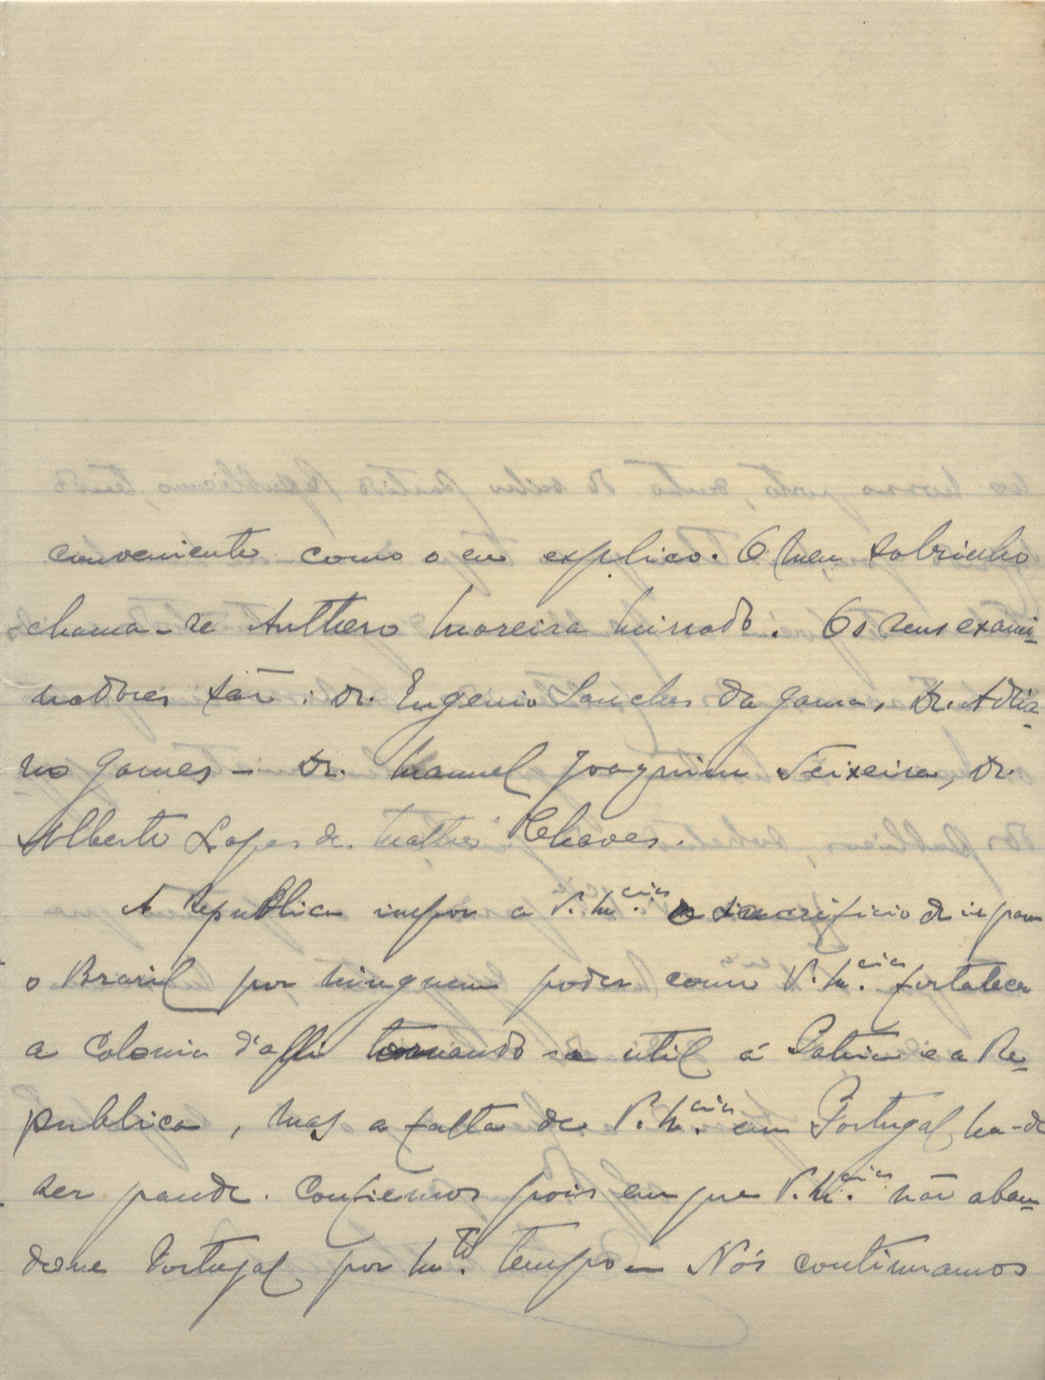 conveniente como o eu explico. O meu sobrinho
chama-se Anthero Moreira Missado. Os seus exami-
nadores são: dr. Eugenio Sanches da Gama, Dr. Adria-
no Gomes - Dr. Manuel Joaquim Teixeira, Dr.
Alberto Lopes de Mattos Chaves.
A Republica impor a V. Mcia. o sacrificio de ir para
o Brasil por ninguem poder como V. Mcia. fortalecer
a Colonia d'alli tornando-se util á Patria e a Re-
publica, mas a falta de V. Mcia. em Portugal, ha-de
ser grande. Confiemos pois em que V. Mcia. não aban-
done Portugal por mto. tempo - Nós continuamos